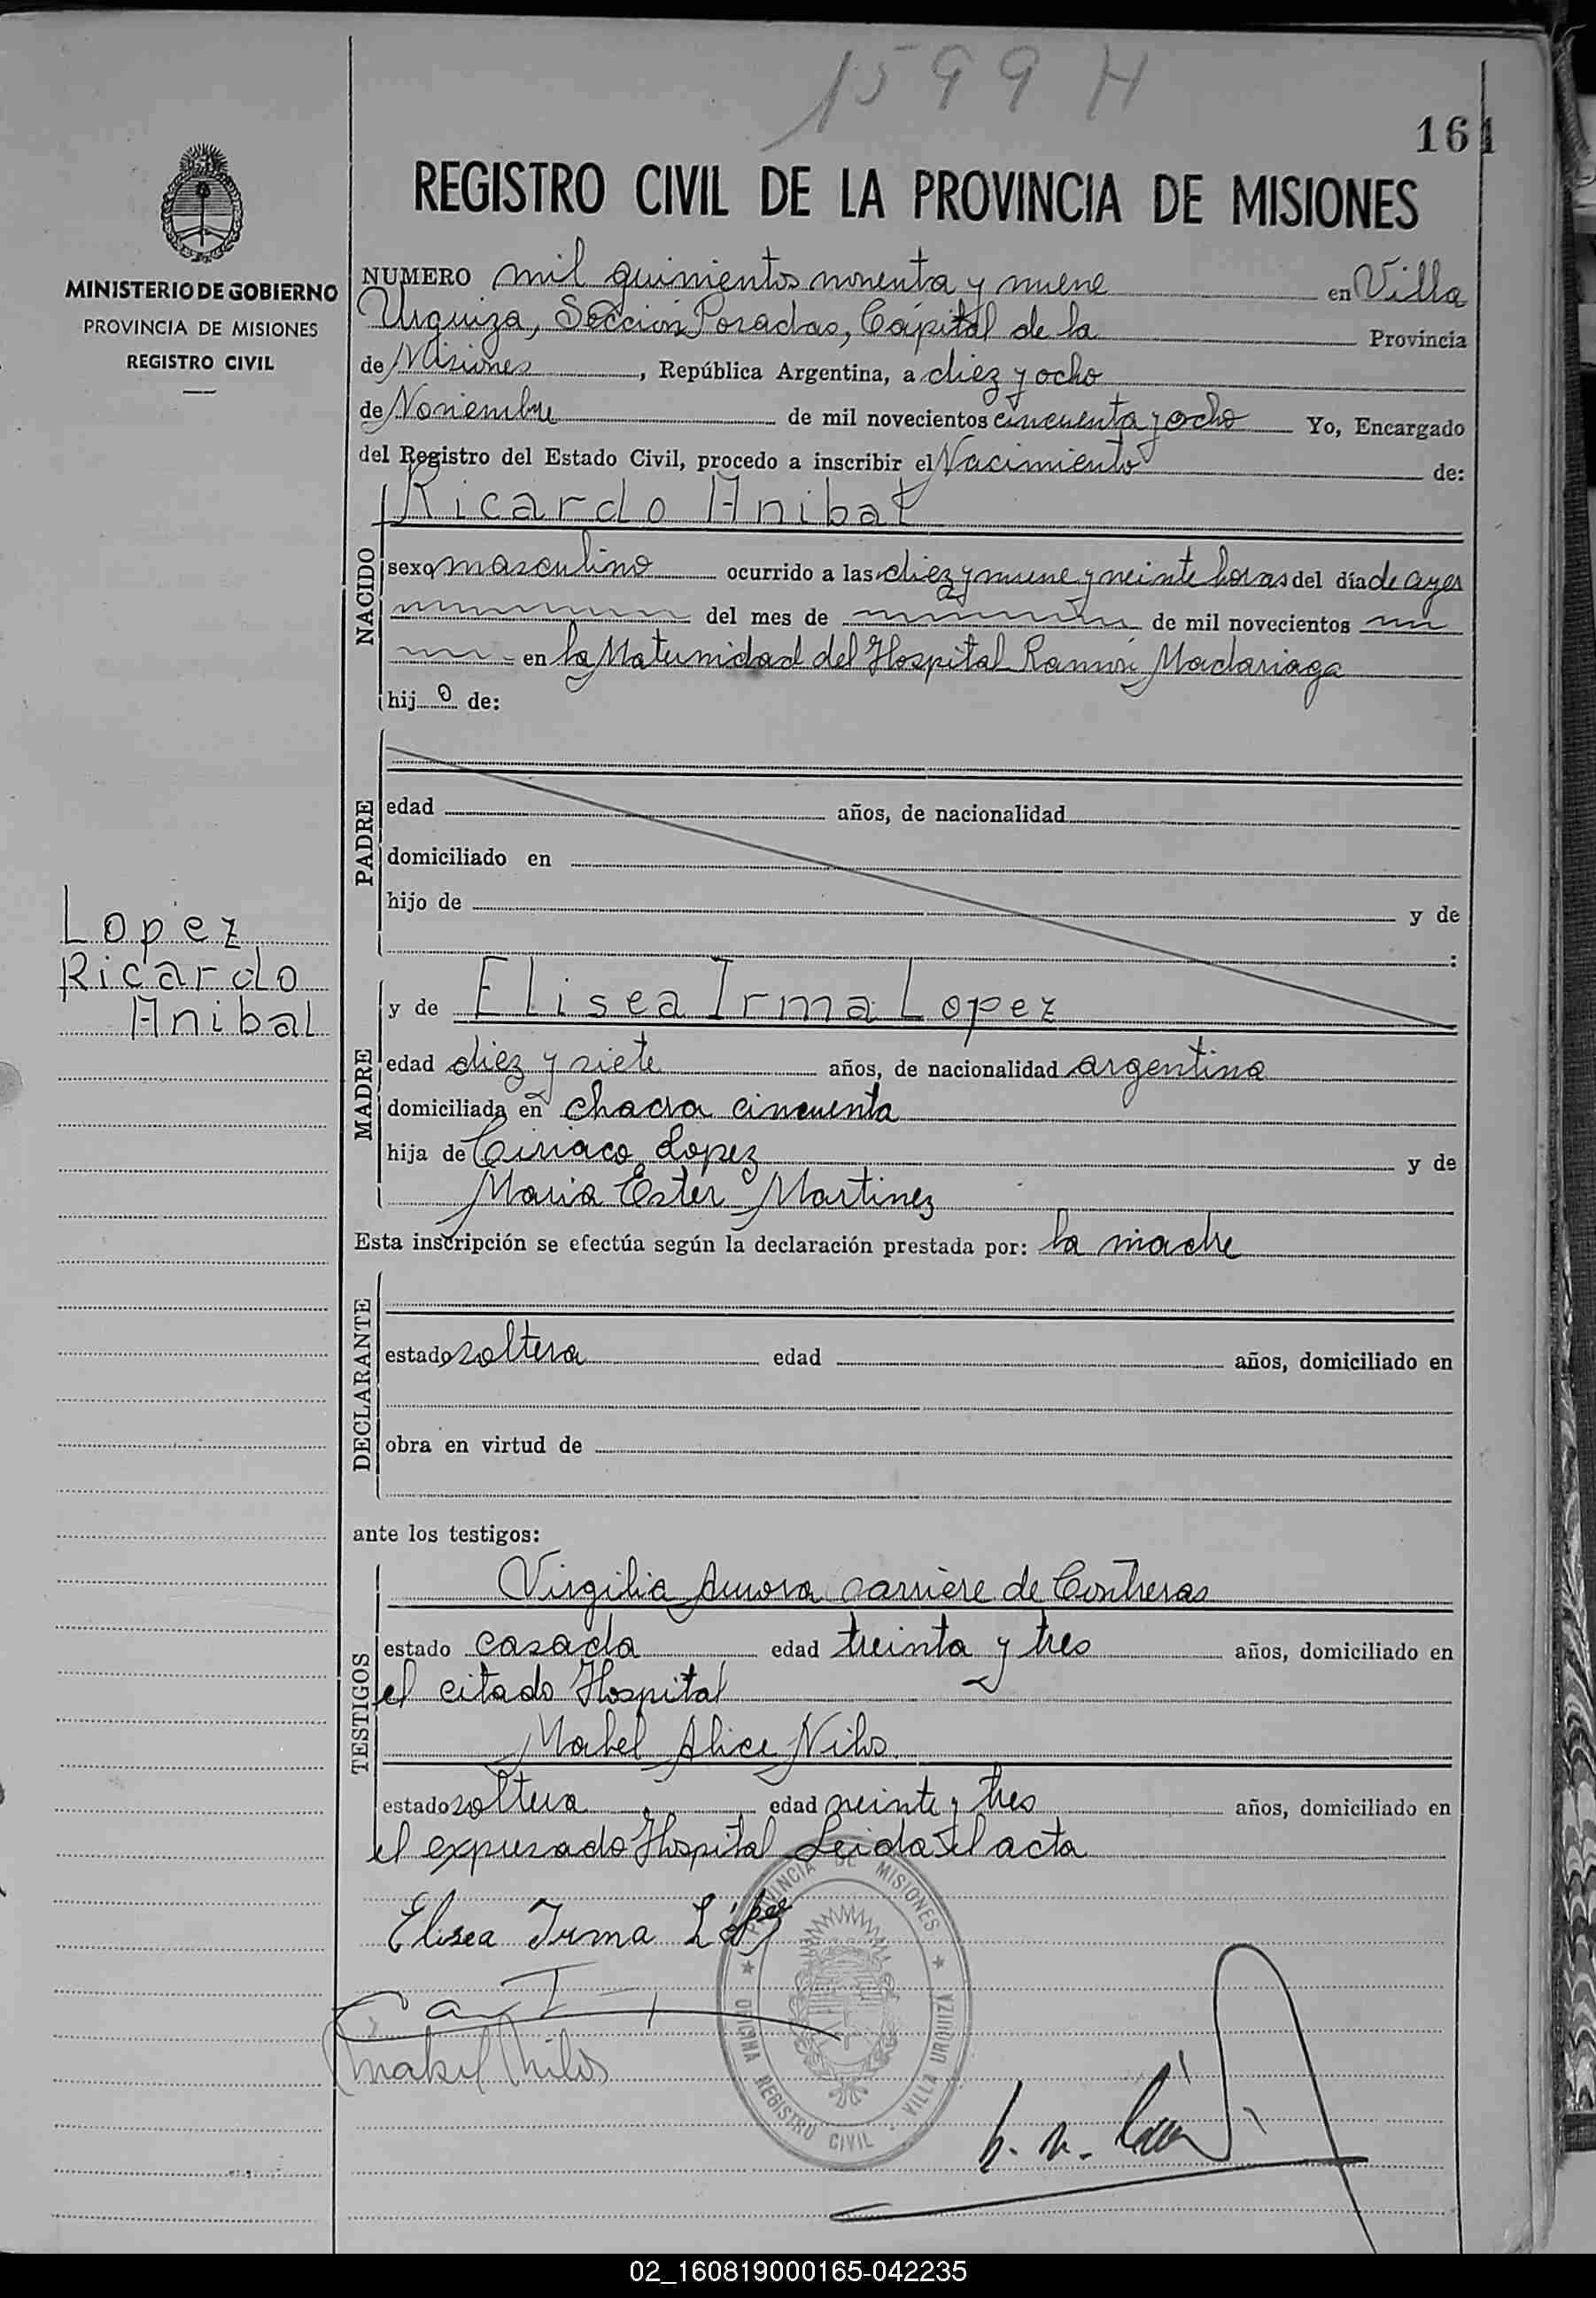 1599 H
161
REGISTRO CIVIL DE LA PROVINCIA DE MISIONES
MINISTERIO DE GOBIERNO
PROVINCIA DE MISIONES
REGISTRO CIVIL
NUMERO mil quinientos noventa y nueve en Villa
Urquiza, Sección Posadas, Capital de la Provincia
de Misiones, República Argentina, a diez y ocho
de Noviembre de mil novecientos cincuenta y ocho Yo, Encargado
del Registro del Estado Civil, procedo a inscribir el Nacimiento de:
Ricardo Anibal
NACIDO
sexo masculino ocurrido a las diez y nueve y veinte horas del día de ayer
del mes de de mil novecientos
en la Maternidad del Hospital Ramón Madariaga
hijo de:
PADRE
edad años, de nacionalidad
domiciliado en
hijo de y de
:
Lopez
Ricardo
Anibal
MADRE
y de Elisea Irma Lopez
edad diez y siete años, de nacionalidad argentina
domiciliada en chacra cincuenta
hija de Ciriaco Lopez y de
Maria Ester Martinez
Esta inscripción se efectúa según la declaración prestada por: la madre
DECLARANTE
estado soltera edad años, domiciliado en
obra en virtud de
ante los testigos:
TESTIGOS
Virgilia Aurora Carriere de Contreras
estado casada edad treinta y tres años, domiciliado en
el citado Hospital
Mabel Alice Nilos
estado soltera edad veinte y tres años, domiciliado en
el expresado Hospital Leida el acta
Elisea Irma López
Mabel Nilos
PROVINCIA DE MISIONES
OFICINA REGISTRO CIVIL - VILLA URQUIZA
02_160819000165-042235